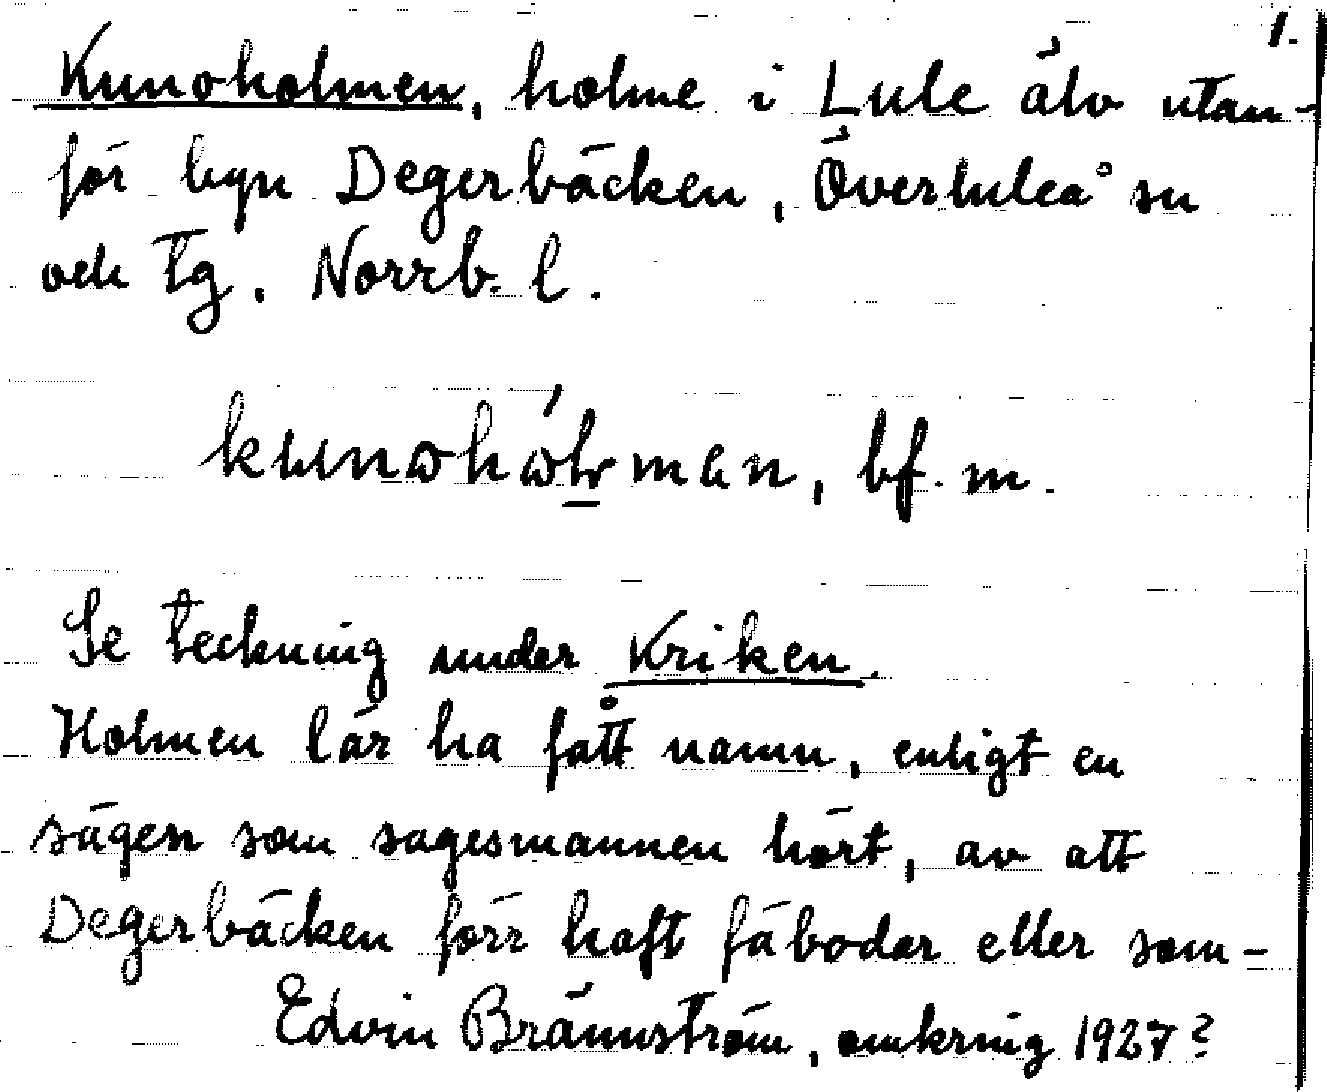 1.
Kunoholmen, holme i Lule älv utan-
för byn Degerbäcken, Överluleå sn
och tg. Norrb. l.
bf. m.
Se teckning under Kriken.
Holmen lär ha fått namn, enligt en
sägen som sagesmannen hört, av att
Degerbäcken förr haft fäbodar eller som-
Edvin Brännström, omkring 1927?